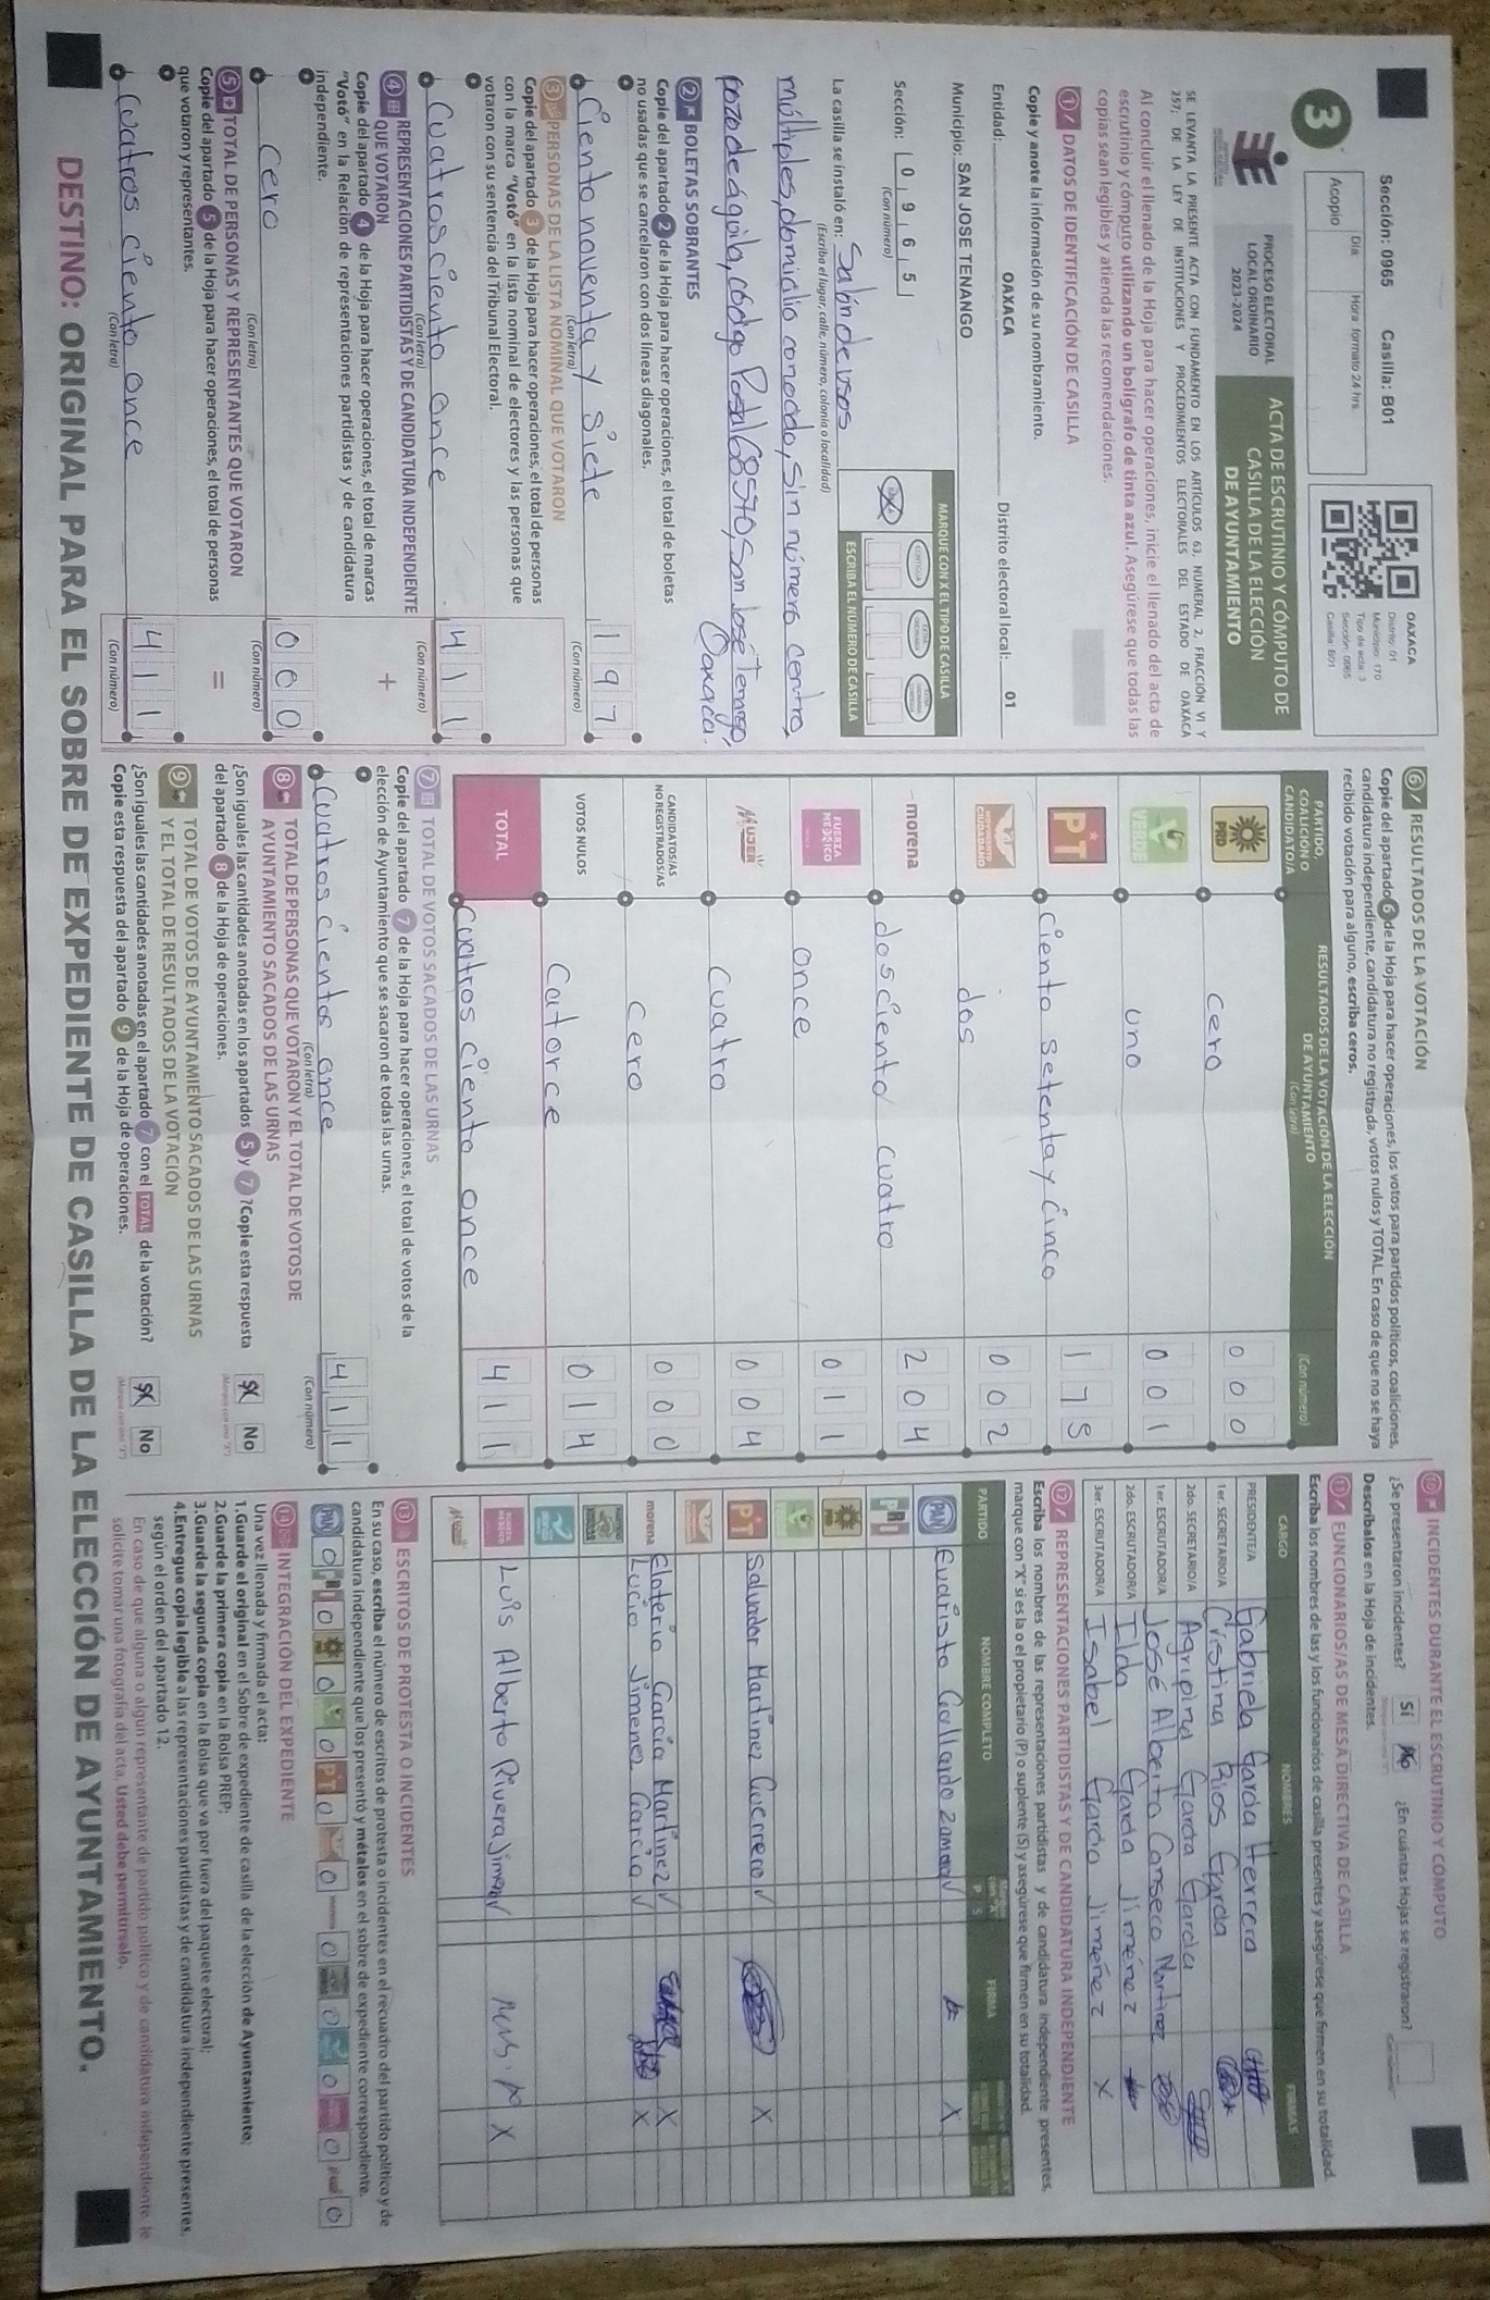 Sección: 0965 Casilla: B01
3
Día Hora formato 24 hrs.
Acopio
OAXACA
Distrito: 01
Municipio: 170
Tipo de acta: 3
Sección: 0965
Casilla: B01
PROCESO ELECTORAL
LOCAL ORDINARIO
2023-2024
ACTA DE ESCRUTINIO Y CÓMPUTO DE
CASILLA DE LA ELECCIÓN
DE AYUNTAMIENTO
SE LEVANTA LA PRESENTE ACTA CON FUNDAMENTO EN LOS ARTÍCULOS 63, NUMERAL 2, FRACCIÓN VI Y
257; DE LA LEY DE INSTITUCIONES Y PROCEDIMIENTOS ELECTORALES DEL ESTADO DE OAXACA
Al concluir el llenado de la Hoja para hacer operaciones, inicie el llenado del acta de
escrutinio y cómputo utilizando un bolígrafo de tinta azul. Asegúrese que todas las
copias sean legibles y atienda las recomendaciones.
1 DATOS DE IDENTIFICACIÓN DE CASILLA
Copie y anote la información de su nombramiento.
Entidad: OAXACA Distrito electoral local: 01
Municipio: SAN JOSE TENANGO
Sección: 0 9 6 5
(Con número)
MARQUE CON X EL TIPO DE CASILLA
ESCRIBA EL NÚMERO DE CASILLA
La casilla se instaló en: Salón de usos
(Escriba el lugar, calle, número, colonia o localidad)
múltiples, domicialio conocido, sin número centro,
pozo de águila, código Postal 68570, San José Tenango,
Oaxaca.
2 BOLETAS SOBRANTES
Copie del apartado 2 de la Hoja para hacer operaciones, el total de boletas
no usadas que se cancelaron con dos líneas diagonales.
Ciento noventa y siete 1 9 7
(Con letra) (Con número)
3 PERSONAS DE LA LISTA NOMINAL QUE VOTARON
Copie del apartado 3 de la Hoja para hacer operaciones, el total de personas
con la marca "Votó" en la lista nominal de electores y las personas que
votaron con su sentencia del Tribunal Electoral.
Cuatros ciento once 4 1 1
(Con letra) (Con número)
4 REPRESENTACIONES PARTIDISTAS Y DE CANDIDATURA INDEPENDIENTE
QUE VOTARON
+
Copie del apartado 4 de la Hoja para hacer operaciones, el total de marcas
"Votó" en la Relación de representaciones partidistas y de candidatura
independiente.
cero 0 0 0
(Con letra) (Con número)
5 TOTAL DE PERSONAS Y REPRESENTANTES QUE VOTARON
=
Copie del apartado 5 de la Hoja para hacer operaciones, el total de personas
que votaron y representantes.
Cuatros ciento once 4 1 1
(Con letra) (Con número)
6 RESULTADOS DE LA VOTACIÓN
Copie del apartado 6 de la Hoja para hacer operaciones, los votos para partidos políticos, coaliciones,
candidatura independiente, candidatura no registrada, votos nulos y TOTAL. En caso de que no se haya
recibido votación para alguno, escriba ceros.
PARTIDO,
COALICIÓN O
CANDIDATO/A
RESULTADOS DE LA VOTACIÓN DE LA ELECCIÓN
DE AYUNTAMIENTO
(Con letra) (Con número)
PRD cero 0 0 0
VERDE uno 0 0 1
PT ciento setenta y cinco 1 7 5
MOVIMIENTO CIUDADANO dos 0 0 2
morena dosciento cuatro 2 0 4
FUERZA MÉXICO once 0 1 1
MUJER cuatro 0 0 4
CANDIDATOS/AS
NO REGISTRADOS/AS cero 0 0 0
VOTOS NULOS Catorce 0 1 4
TOTAL Cuatros ciento once 4 1 1
7 TOTAL DE VOTOS SACADOS DE LAS URNAS
Copie del apartado 7 de la Hoja para hacer operaciones, el total de votos de la
elección de Ayuntamiento que se sacaron de todas las urnas.
Cuatros cientos once 4 1 1
(Con letra) (Con número)
8 TOTAL DE PERSONAS QUE VOTARON Y EL TOTAL DE VOTOS DE
AYUNTAMIENTO SACADOS DE LAS URNAS
¿Son iguales las cantidades anotadas en los apartados 5 y 7 ? Copie esta respuesta
del apartado 8 de la Hoja de operaciones.
Sí No
9 TOTAL DE VOTOS DE AYUNTAMIENTO SACADOS DE LAS URNAS
Y EL TOTAL DE RESULTADOS DE LA VOTACIÓN
¿Son iguales las cantidades anotadas en el apartado 7 con el TOTAL de la votación?
Copie esta respuesta del apartado 9 de la Hoja de operaciones.
Sí No
10 INCIDENTES DURANTE EL ESCRUTINIO Y CÓMPUTO
¿Se presentaron incidentes? Sí No ¿En cuántas Hojas se registraron?
Descríbalos en la Hoja de incidentes.
11 FUNCIONARIOS/AS DE MESA DIRECTIVA DE CASILLA
Escriba los nombres de las y los funcionarios de casilla presentes y asegúrese que firmen en su totalidad.
CARGO NOMBRES FIRMAS
PRESIDENTE/A Gabriela García Herrera
1er. SECRETARIO/A Cristina Rios García
2do. SECRETARIO/A Agripina García García
1er. ESCRUTADOR/A José Alberto Canseco Martinez
2do. ESCRUTADOR/A Ilda García Jiménez
3er. ESCRUTADOR/A Isabel García Jiménez X
12 REPRESENTACIONES PARTIDISTAS Y DE CANDIDATURA INDEPENDIENTE
Escriba los nombres de las representaciones partidistas y de candidatura independiente presentes,
marque con "X" si es la o el propietario (P) o suplente (S) y asegúrese que firmen en su totalidad.
PARTIDO NOMBRE COMPLETO P S FIRMA
PAN Evaristo Gallardo X
PRI
PT Salvador Martinez Guerrero X
morena Eloterio García Martinez X
Lucio Jimenez García X
Luis Alberto Rivera Jimenez X
13 ESCRITOS DE PROTESTA O INCIDENTES
En su caso, escriba el número de escritos de protesta o incidentes en el recuadro del partido político y de
candidatura independiente que los presentó y métalos en el sobre de expediente correspondiente.
PAN 0 PRI 0 0 0 PT 0 0 0 0 0 0 0
14 INTEGRACIÓN DEL EXPEDIENTE
Una vez llenada y firmada el acta:
1.Guarde el original en el Sobre de expediente de casilla de la elección de Ayuntamiento;
2.Guarde la primera copia en la Bolsa PREP;
3.Guarde la segunda copia en la Bolsa que va por fuera del paquete electoral;
4.Entregue copia legible a las representaciones partidistas y de candidatura independiente presentes,
según el orden del apartado 12.
En caso de que alguna o algún representante de partido político y de candidatura independiente, le
solicite tomar una fotografía del acta, Usted debe permitírselo.
DESTINO: ORIGINAL PARA EL SOBRE DE EXPEDIENTE DE CASILLA DE LA ELECCIÓN DE AYUNTAMIENTO.